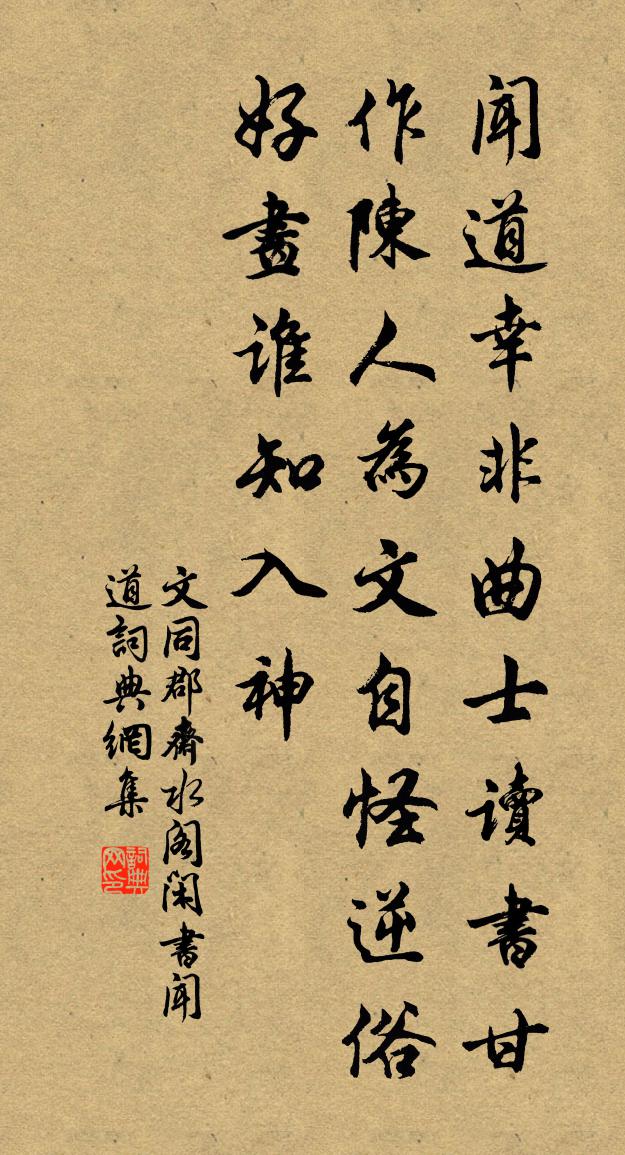 聞道幸非曲士讀書甘
作陳人為文自怪逆俗
好畫誰知入神
文同郡齋水閣閑書聞
道詞典網集
詞典
网印